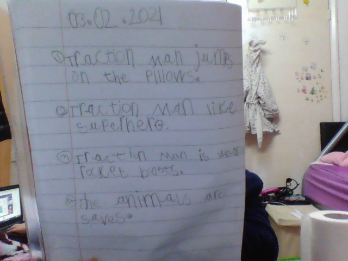 03.02.2021
① Traction man jumps
on the pillows.
② Traction man like
superhero.
③ Traction man is
rocket boots.
④ the animals are
saves.